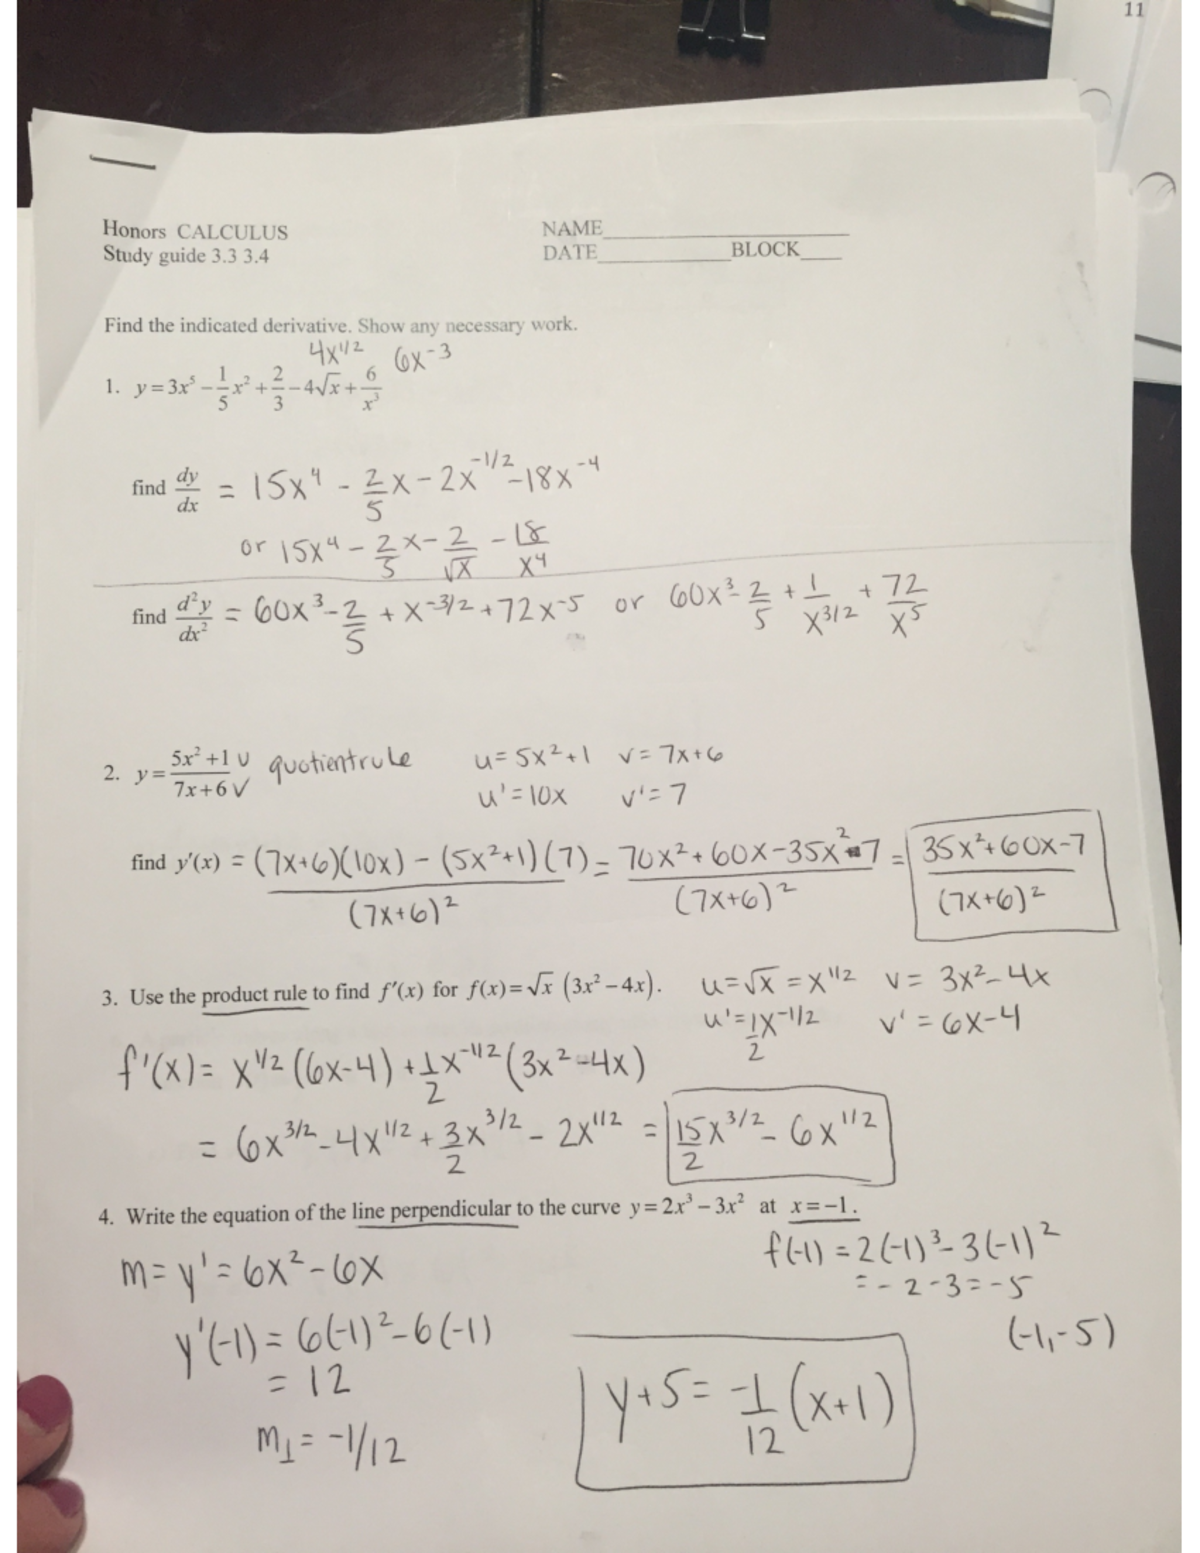 11
Honors CALCULUS NAME
Study guide 3.3 3.4 DATE BLOCK
Find the indicated derivative. Show any necessary work.
4x^1/2 6x^-3
1. y = 3x^5 - 1/5 x^2 + 2/3 - 4√x + 6/x^3
find dy/dx = 15x^4 - 2/5 x - 2x^-1/2 - 18x^-4
or 15x^4 - 2/5 x - 2/√x - 18/x^4
find d²y/dx² = 60x^3 - 2/5 + x^-3/2 + 72x^-5 or 60x^3 - 2/5 + 1/x^3/2 + 72/x^5
2. y = 5x²+1 u / 7x+6 v quotient rule u = 5x²+1 v = 7x+6
u' = 10x v' = 7
find y'(x) = (7x+6)(10x) - (5x²+1)(7) / (7x+6)² = 70x² + 60x - 35x² - 7 / (7x+6)² = 35x² + 60x - 7 / (7x+6)²
3. Use the product rule to find f'(x) for f(x) = √x (3x² - 4x). u = √x = x^1/2 v = 3x² - 4x
u' = 1/2 x^-1/2 v' = 6x - 4
f'(x) = x^1/2 (6x-4) + 1/2 x^-1/2 (3x² - 4x)
= 6x^3/2 - 4x^1/2 + 3/2 x^3/2 - 2x^1/2 = 15/2 x^3/2 - 6x^1/2
4. Write the equation of the line perpendicular to the curve y = 2x³ - 3x² at x = -1.
m = y' = 6x² - 6x f(-1) = 2(-1)³ - 3(-1)²
= -2 - 3 = -5
y'(-1) = 6(-1)² - 6(-1) (-1, -5)
= 12
y + 5 = -1/12 (x + 1)
m⊥ = -1/12